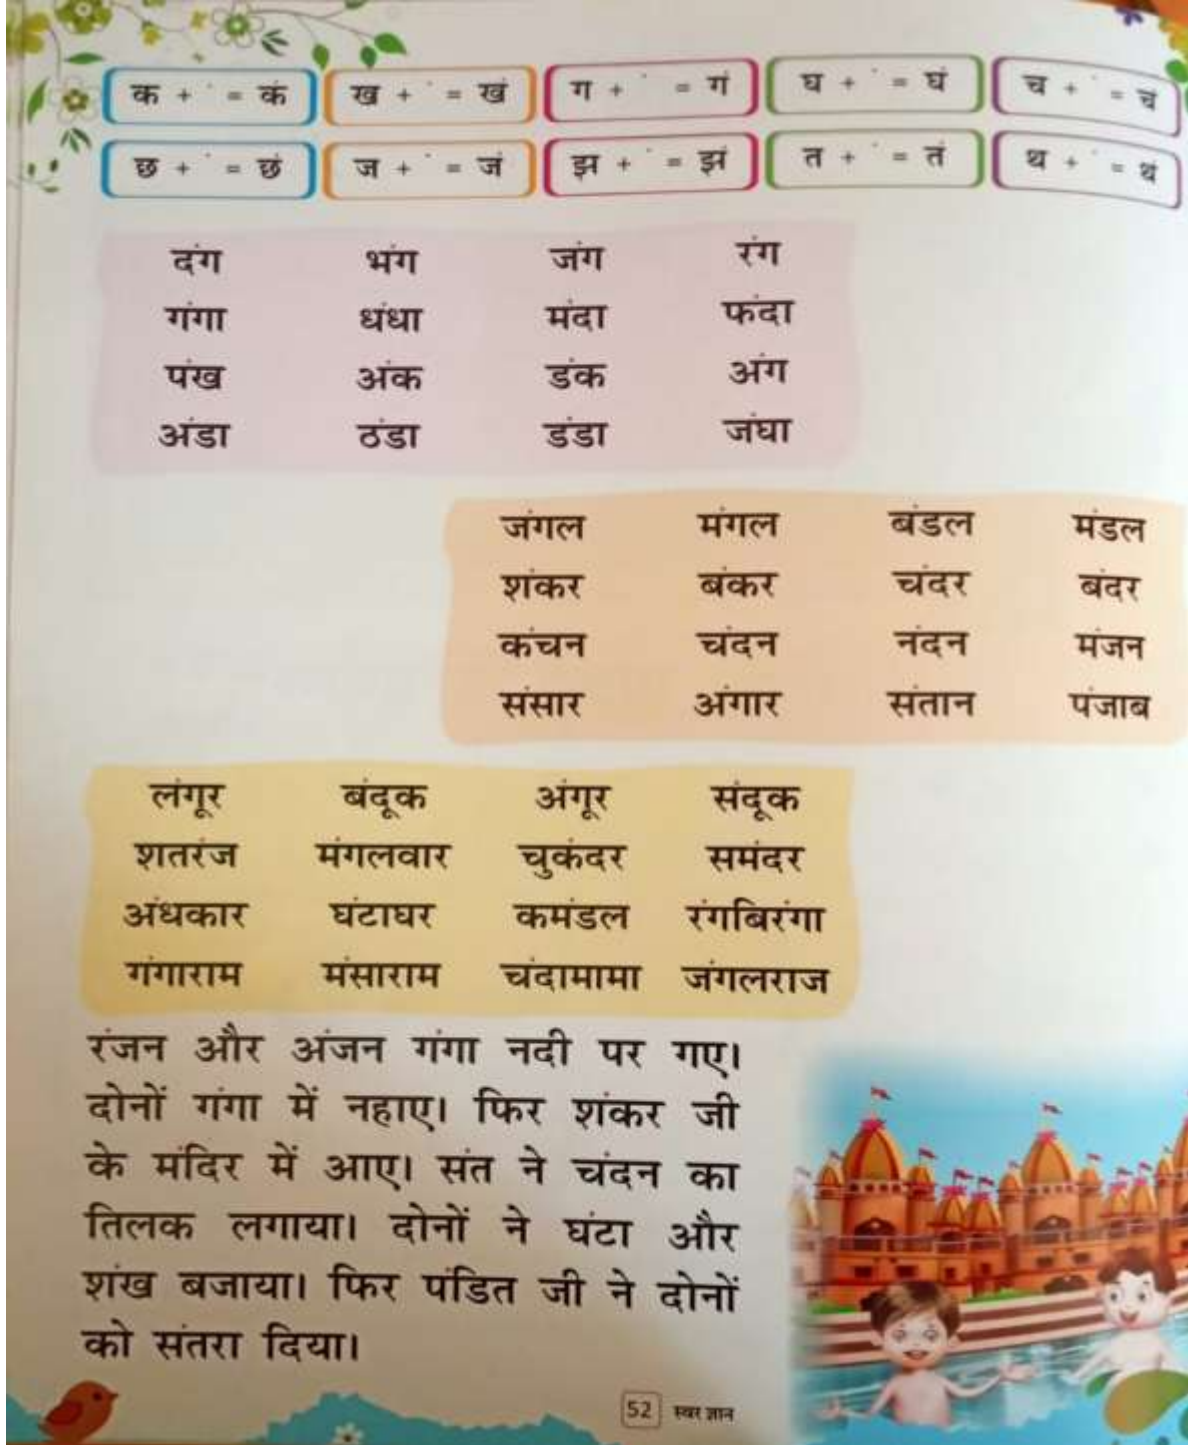 क + ं = कं ख + ं = खं ग + ं = गं घ + ं = घं च + ं = चं
छ + ं = छं ज + ं = जं झ + ं = झं त + ं = तं थ + ं = थं
दंग भंग जंग रंग
गंगा धंधा मंदा फंदा
पंख अंक डंक अंग
अंडा ठंडा डंडा जंघा
जंगल मंगल बंडल मंडल
शंकर बंकर चंदर बंदर
कंचन चंदन नंदन मंजन
संसार अंगार संतान पंजाब
लंगूर बंदूक अंगूर संदूक
शतरंज मंगलवार चुकंदर समंदर
अंधकार घंटाघर कमंडल रंगबिरंगा
गंगाराम मंसाराम चंदामामा जंगलराज
रंजन और अंजन गंगा नदी पर गए।
दोनों गंगा में नहाए। फिर शंकर जी
के मंदिर में आए। संत ने चंदन का
तिलक लगाया। दोनों ने घंटा और
शंख बजाया। फिर पंडित जी ने दोनों
को संतरा दिया।
52 स्वर ज्ञान